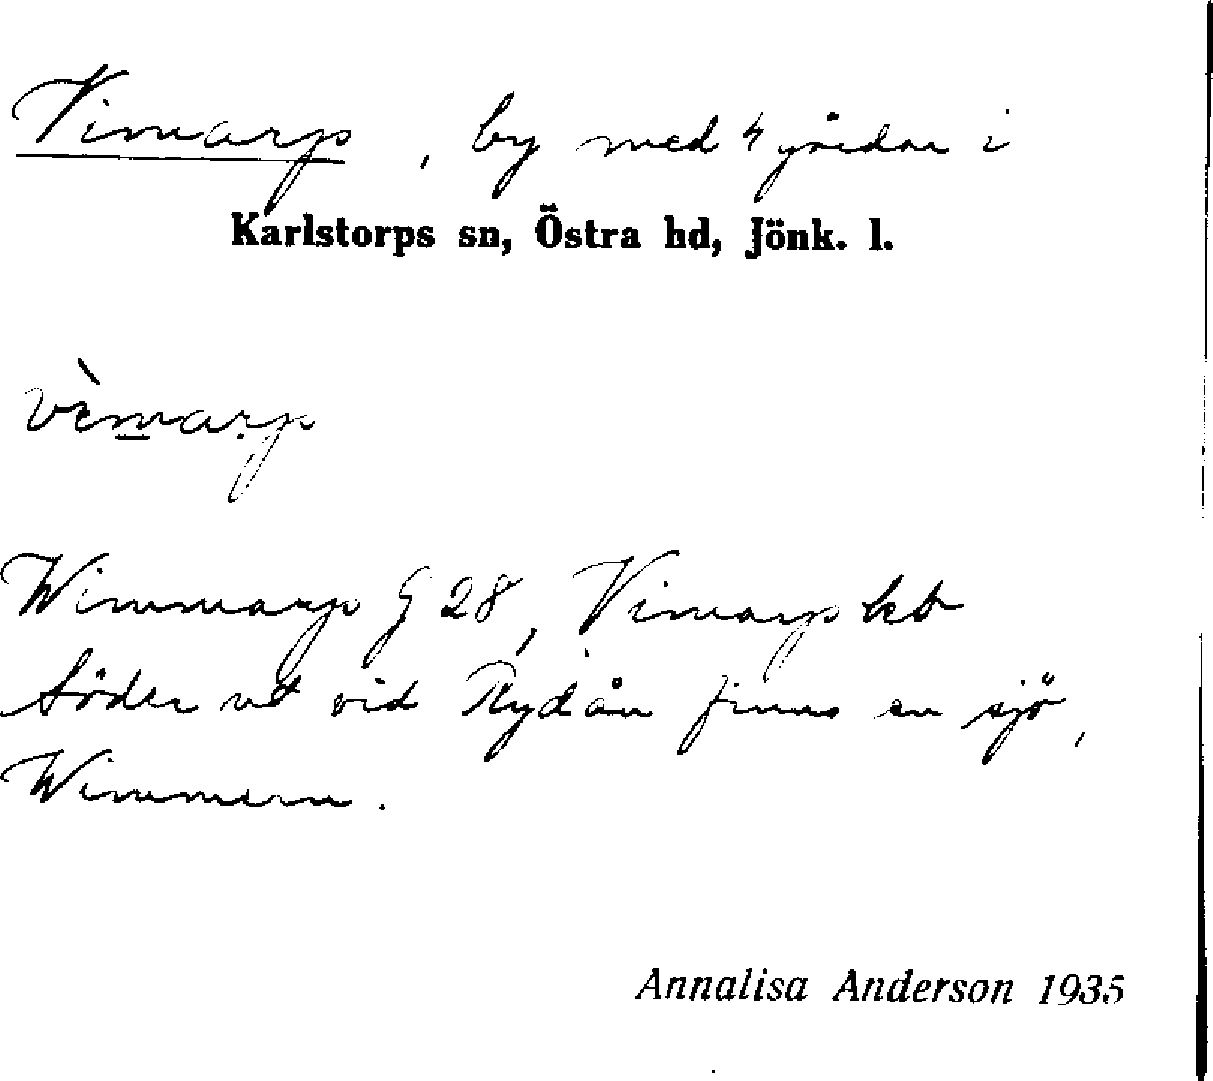 Vimarp, by med 4 gårdar i
Karlstorps sn, Östra hd, Jönk. l.
vèmarp
Wimmarp G 28, Vimarp kb
Söder ut vid Rydån finns en sjö,
Wimmern.
Annalisa Anderson 1935